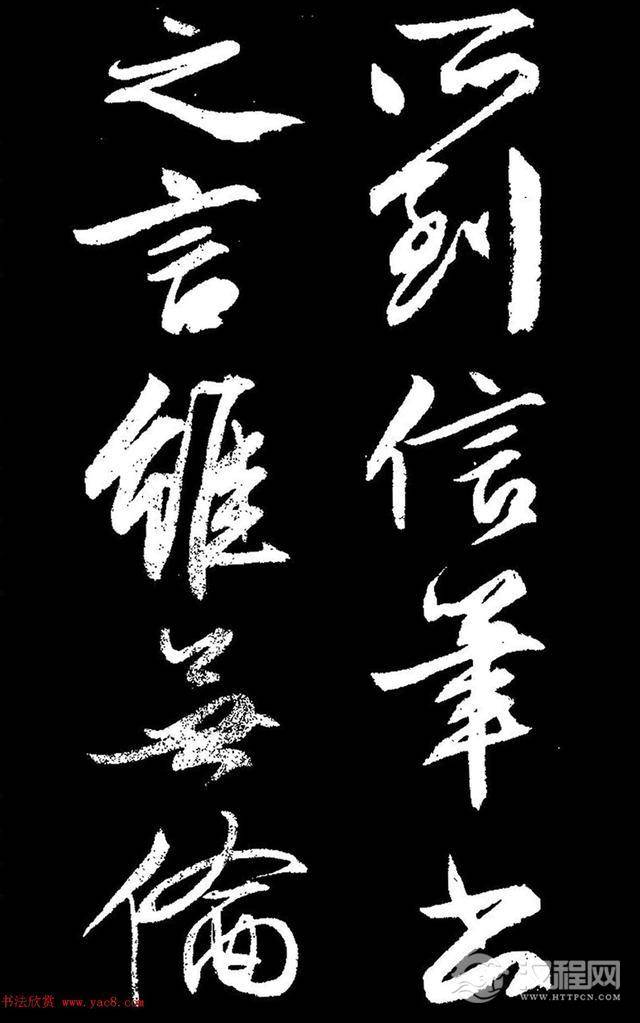 所到信筆書
之言雖無倫
书法欣赏 www.yac8.com
汉程网
WWW.HTTPCN.COM